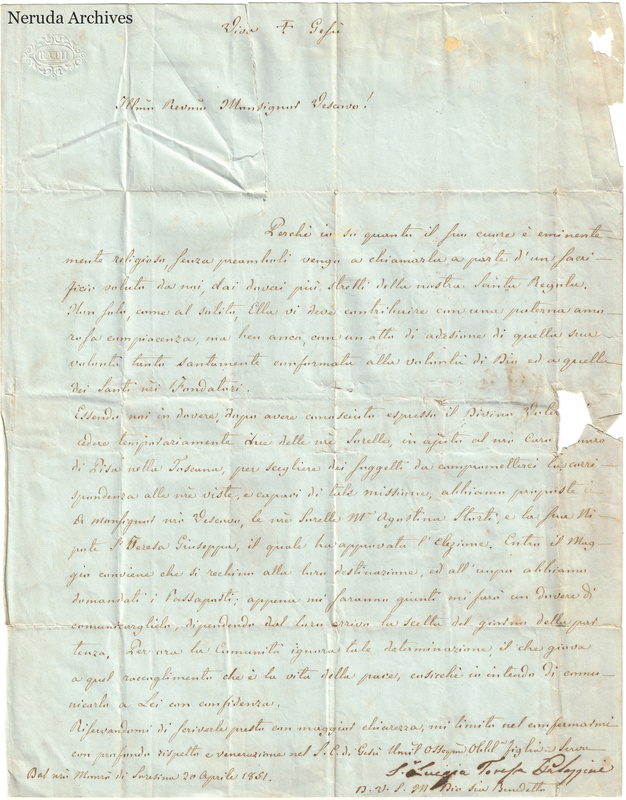 Neruda Archives
BATH
Viva + Gesù
Illmo Revmo Monsignor Vescovo!
Perchè io so quanto il suo cuore è eminente-
mente religioso, senza preamboli vengo a chiamarla a parte d'un sacri-
ficio voluto da noi, dai doveri più stretti della nostra Santa Regola.
Non solo, come al solito, Ella vi deve contribuire con una paterna amo-
rosa compiacenza, ma ben anco, con un atto di adesione di quella sua
volontà tanto santamente conformata alla volontà di Dio ed a quella
dei Santi nri Fondatori.
Essendo noi in dovere, dopo avere conosciuto espresso il Divino Voler
cedere temporariamente due delle nre Sorelle, in ajuto al nro Caro
di Pisa nella Toscana, per scegliere dei soggetti da comprometterci la corri-
spondenza alle nre viste, e capaci di tale missione, abbiamo proposte
a Monsignor nro Vescovo, le nre Sorelle Ma Agostina Storti, e la sua Ni-
pote Sr Teresa Giuseppa, il quale ha approvata l'elezione. Entro il Mag-
gio conviene che si rechino alla loro destinazione, ed all'uopo abbiamo
domandati i Passaporti; appena mi saranno giunti mi farò un dovere di
comunicarglielo, dipendendo dal loro arrivo la scelta del giorno della par-
tenza. Per ora la Comunità ignora tale determinazione il che giova
a quel raccoglimento che è la vita della pace, cosicchè io intendo di comu-
nicarlo a Lei con confidenza.
Riservandomi di scriverle presto con maggior chiarezza, mi limito nel confermarmi
con profondo rispetto e venerazione nel S. C. di Gesù Umil Ossequa Obbla Figlia e Serva
Dal nro Monro di Soresina 20 Aprile 1851.
Sr Luigia Teresa
D. V. S. M. Dio sia Benedetto